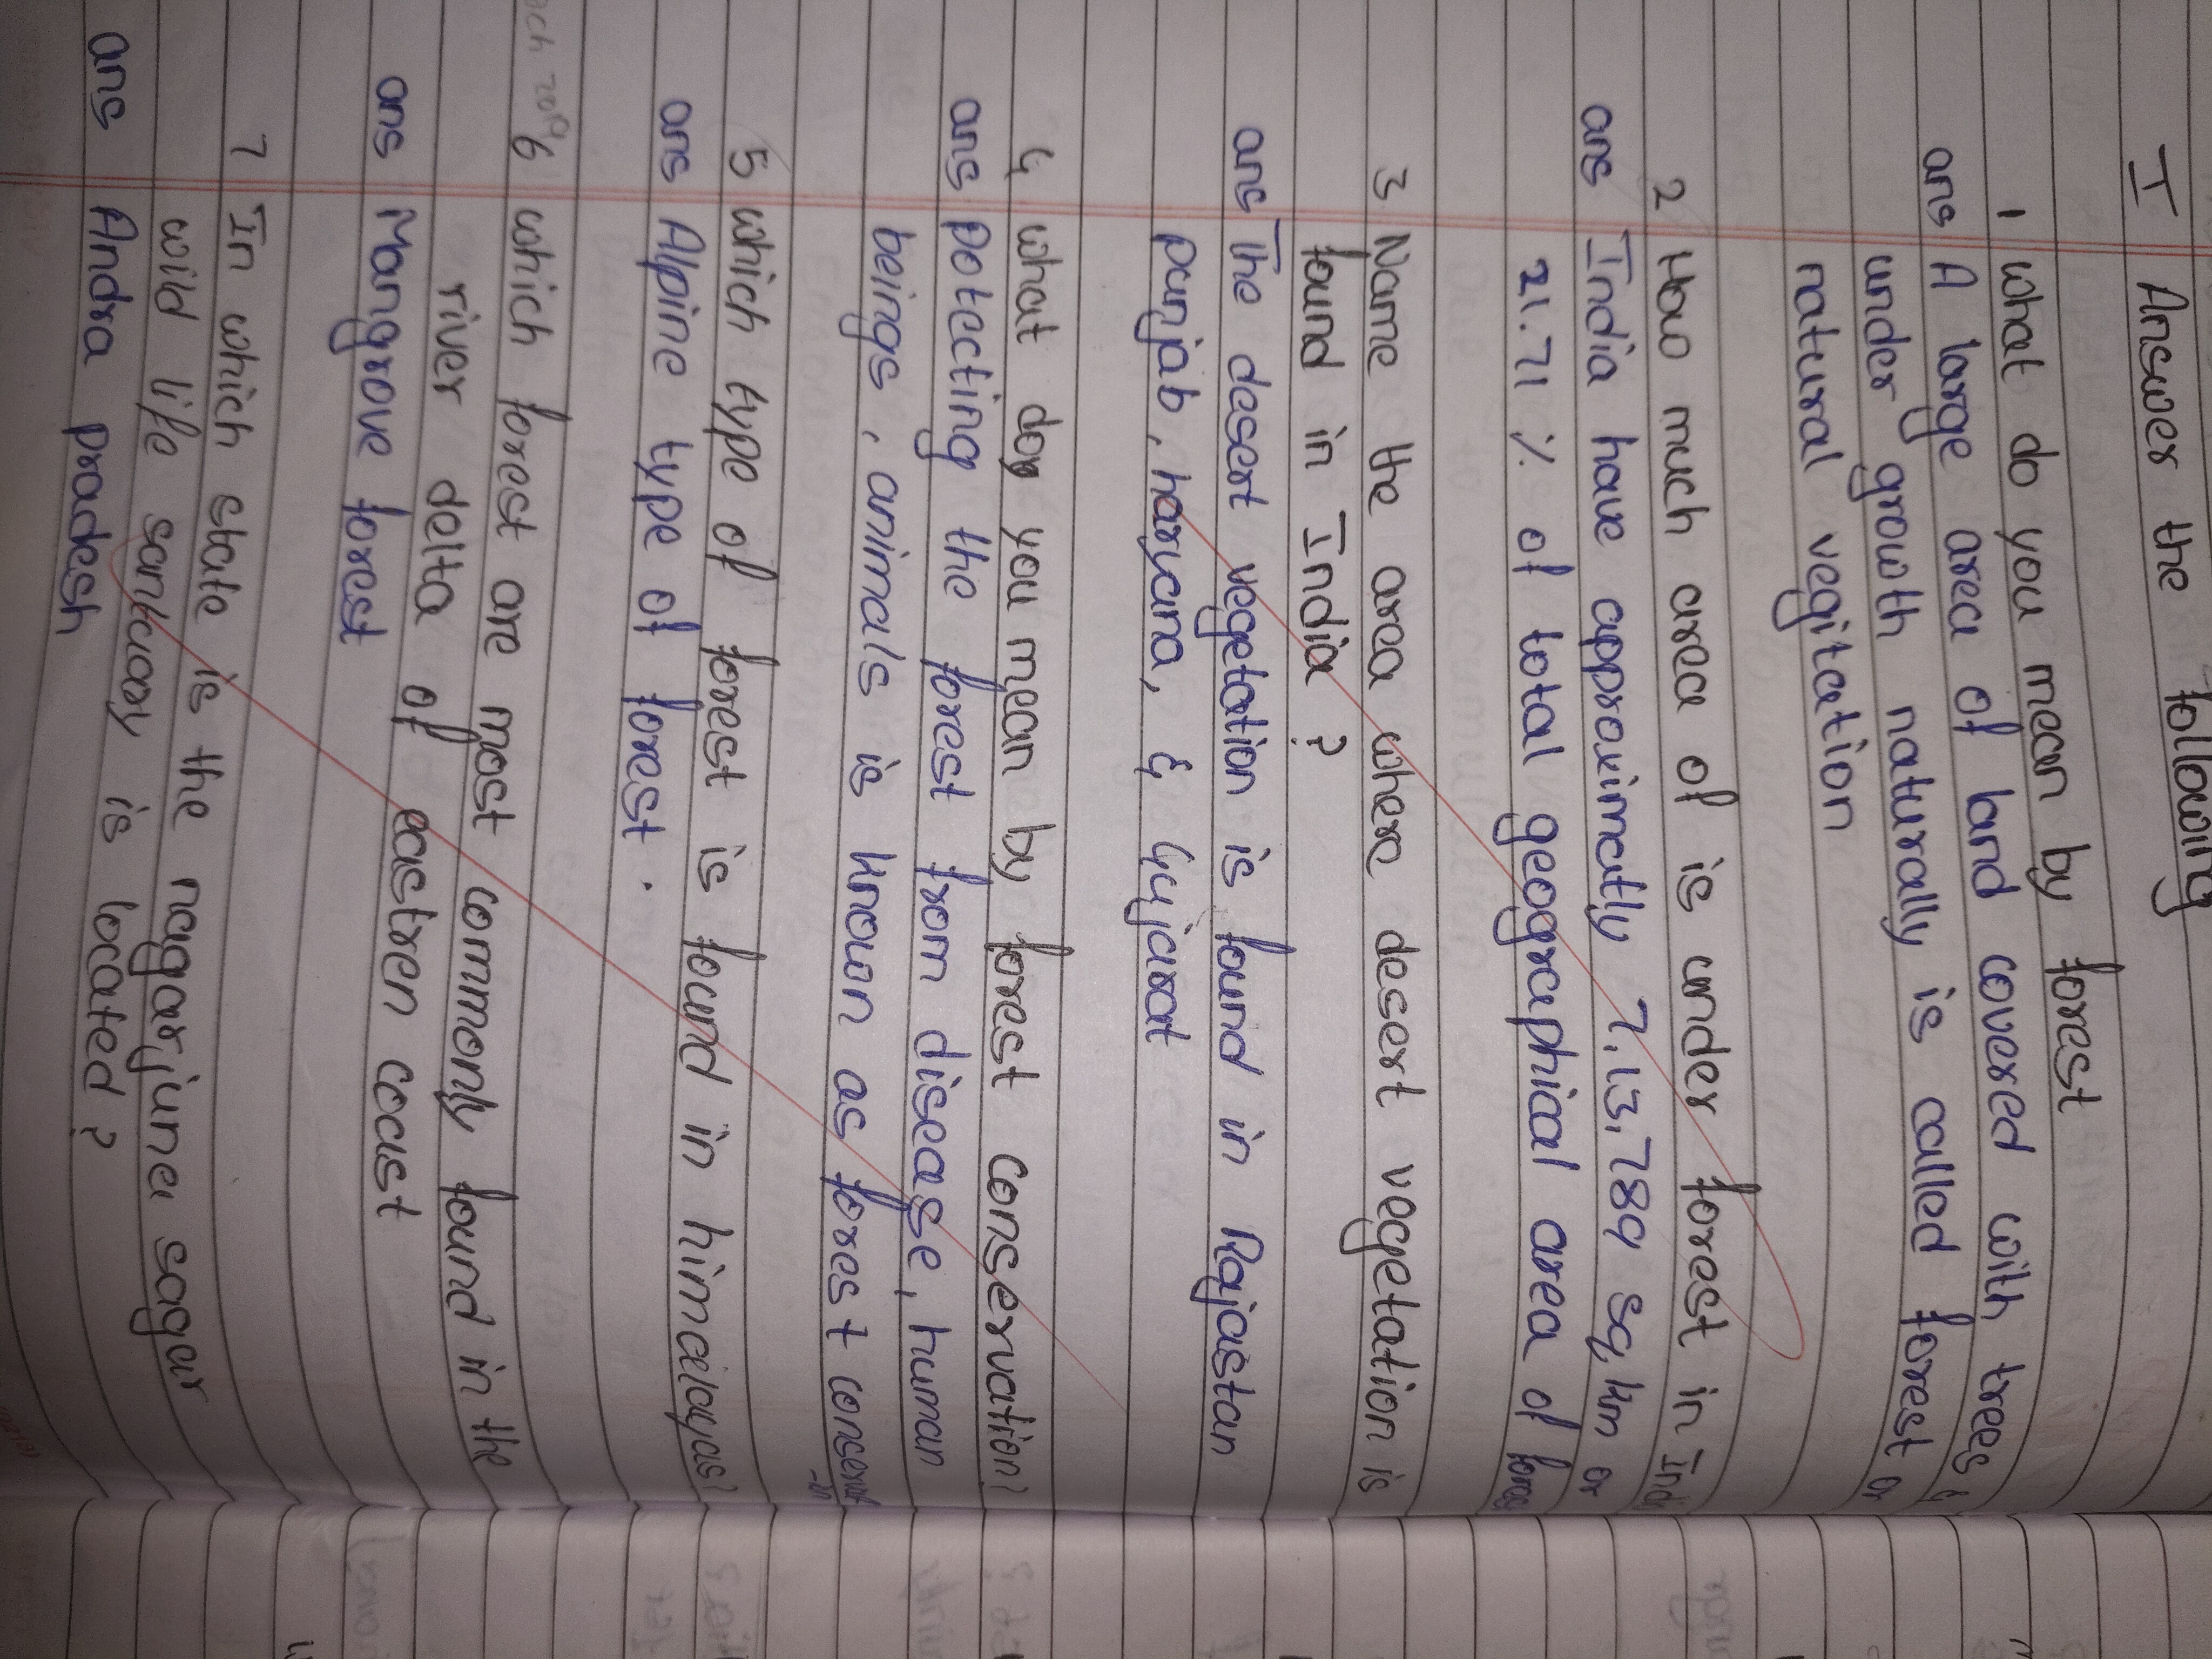 I Answer the following
1 what do you mean by forest
ans A large area of land covered with trees &
under growth naturally is called forest or
natural vegitation
2 How much area of is under forest in Ind
ans India have approximatly 7,13,789 sq km or
21.71 % of total geographical area of fores
3 Name the area where desert vegetation is
found in India ?
ans The desert vegetation is found in Rajastan
punjab, haryana, & Gujarat
4 what do you mean by forest conservation?
ans potecting the forest from disease, human
beings, animals is known as forest conservat
-ion
5 which type of forest is found in himalayas?
ans Alpine type of forest.
6 which forest are most commonly found in the
river delta of eastren coast
ans Mangrove forest
7 In which state is the nagarjuna sagar
wild life santuary is located ?
ans Andra pradesh